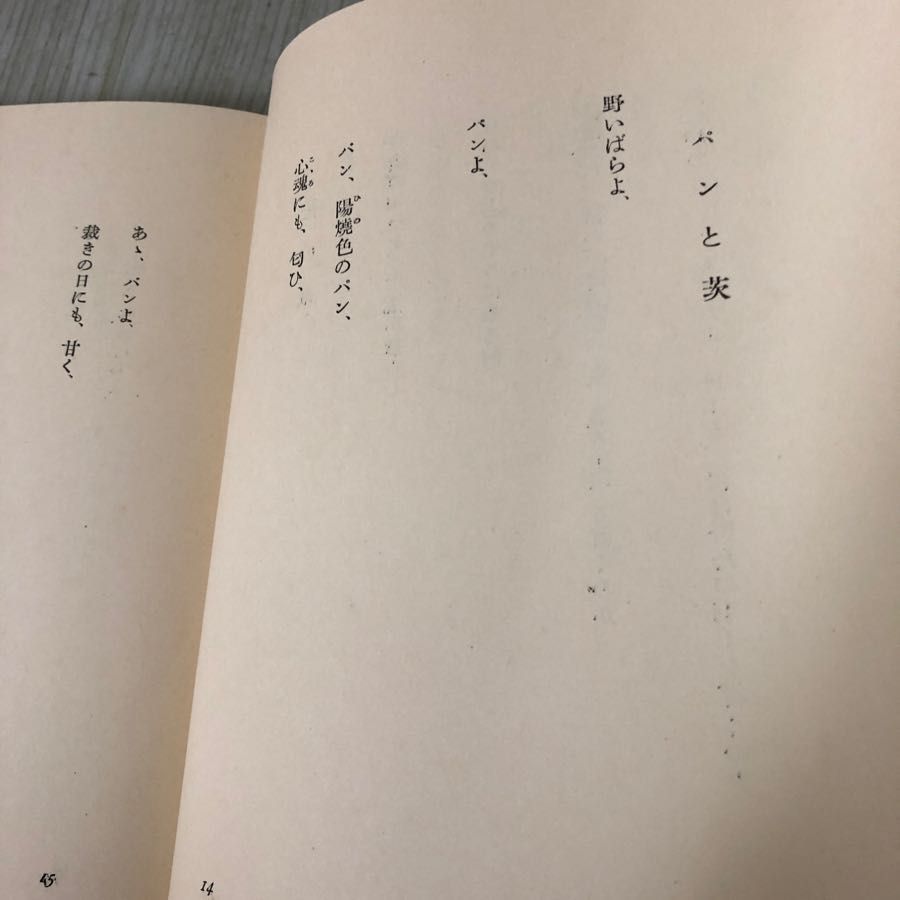 パンと茨
野いばらよ、
パンよ、
パン、陽燒色のパン、
心魂にも、匂ひ、
14
あゝ、パンよ、
裁きの日にも、甘く、